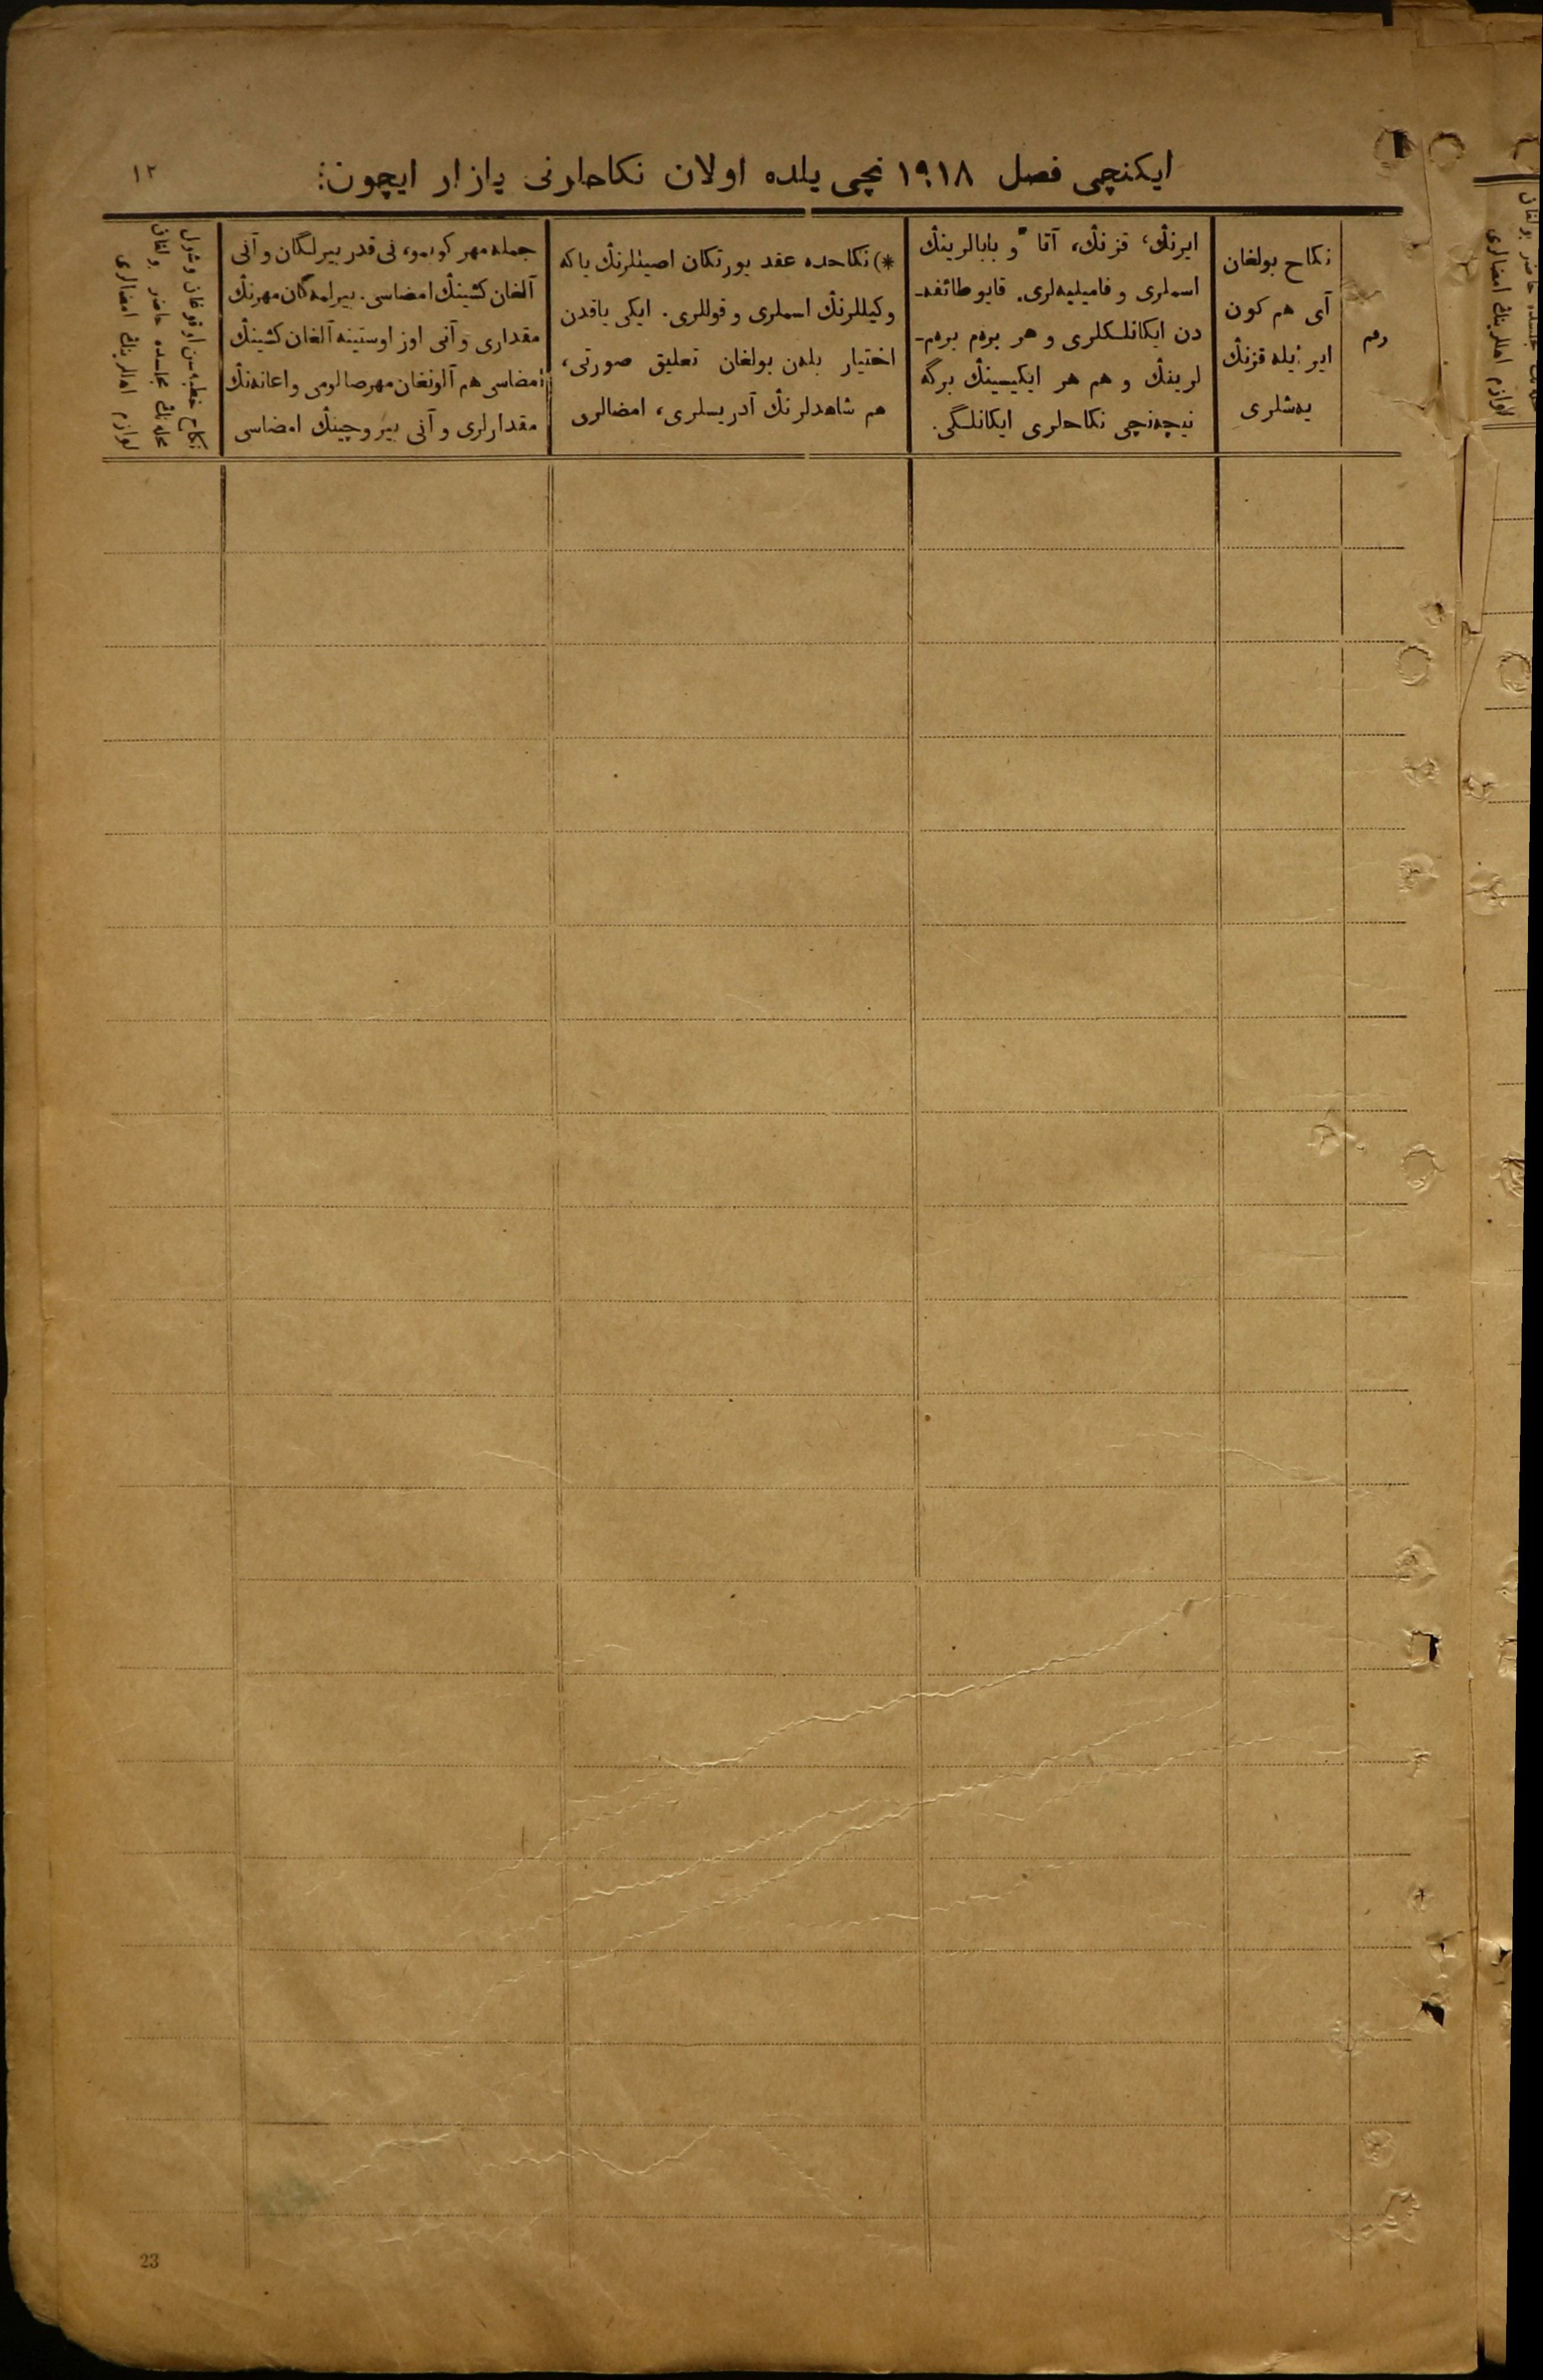 ایکنچی فصل ۱۹۱۸ نچی یلده اولان نکاحلرنی یازار ایچون:
۱۲
رقم
نکاح بولغان
آی هم کون
ایر ایله قزنڭ
یه‌شلری
ایرنڭ، قزنڭ، آتا و بابالرینڭ
اسملری و فامیلیه‌لری. قایو طائفه‌ـ
دن ایکانلسکلری و هر برم برم‌ـ
لرینڭ و هم هر ایکیسینڭ برگه
نیچه‌نچی نکاحلری ایکانلگی.
*) نکاحده عقد یورتکان اصیللرنڭ یا که
وکیللرنڭ اسملری و قوللری. ایکی یاقدن
اختیار بلەن بولغان تعلیق صورتی،
هم شاهدلرنڭ آدریسلری، امضالری
جمله مهر کوبمو، نی قدر بیرلگان و آنی
آلغان کشینڭ امضاسی. بیرلمه‌گان مهرنڭ
مقداری و آنی اوز اوستینه آلغان کشینڭ
امضاسی هم آلونغان مهر صالومی و اعانه‌نڭ
مقدارلری و آنی بیروچینڭ امضاسی
نکاح خطبه‌سن اوقوغان و شول
محله‌نڭ مجلسده حاضر بولغان
لوازم اهللرینڭ امضالری
23